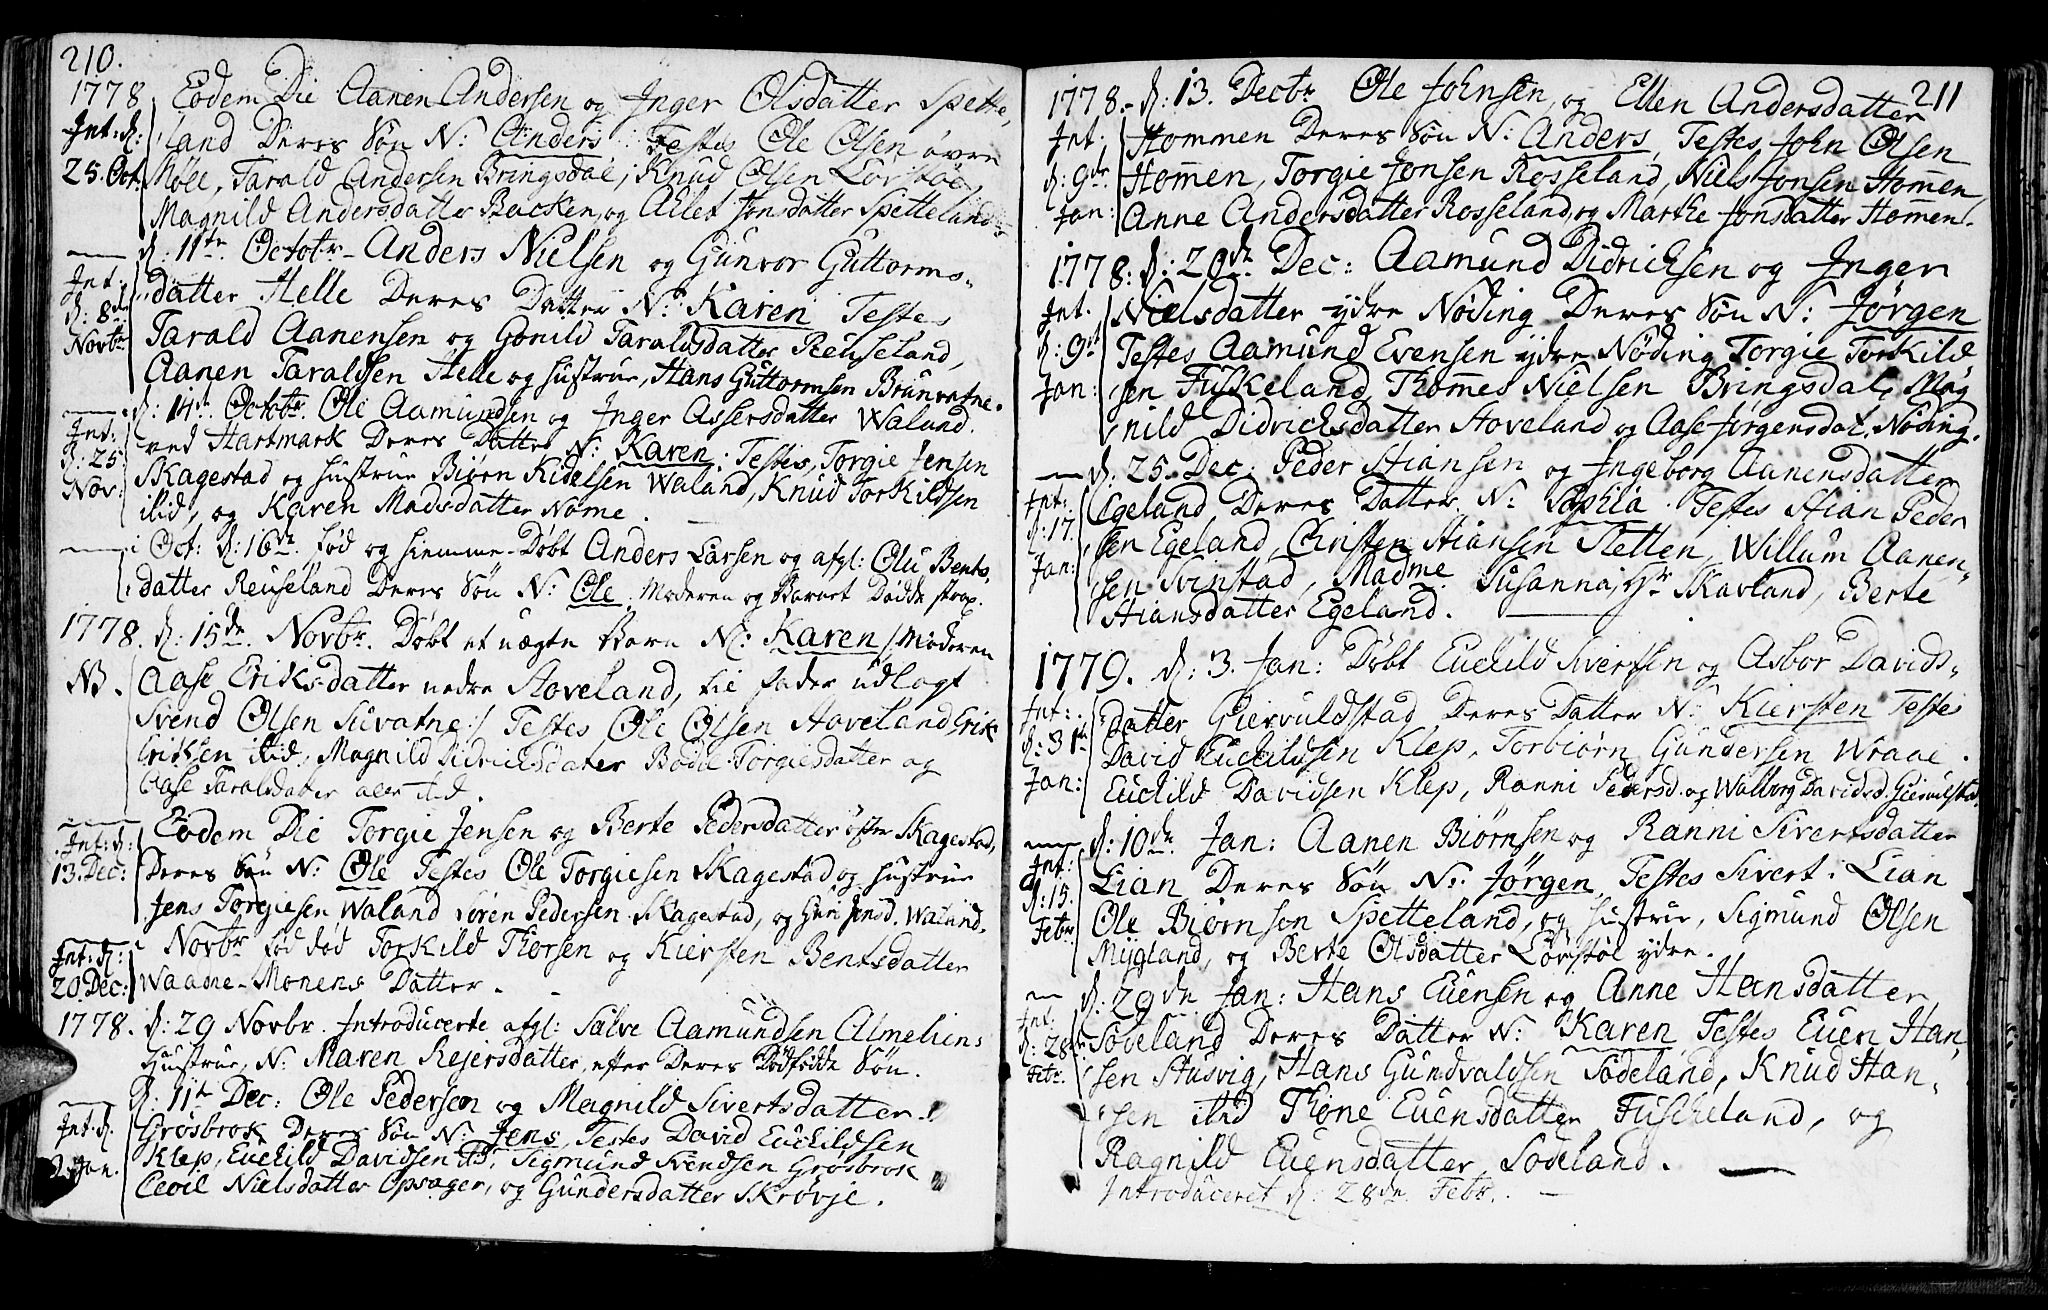 210.
1778 Eodem Die Aanen Andersen og Inger Olsdatter Spette,
Int: d: land Deres Søn N: Anders Testes Ole Olsen øvre
25. Oct. Møll, Tarald Andersen Bringsdal, Knud Olsen Lørstøl,
Magnild Andersdatter Backen, og Allet Jonsdatter Spetteland
d: 11te Octobr. Anders Nielsen og Gunvor Guttorms-
Int. datter Helle Deres Datter N: Karen Testes
d: 8de Tarald Aanensen og Gonild Taraldsdatter Reuseland,
Novbr Aanen Taraldsen Helle og hustrue, Hans Guttormsen Brunvatne.
d: 14de Octobr. Ole Aamundsen og Inger Assersdatter Waland
Int: ved Hartmark Deres Datter N: Karen. Testes, Torgie Jensen
d: 25 Skagestad og hustrue Biørn Kidelsen Waland, Knud Torkildsen
Nov: ibid, og Karen Madsdatter Nome.
Oct: d: 16de fød og hiemme-Døbt Anders Larsen og afgl: Olu Bents,
datter Reuseland Deres Søn N: Ole. Moderen og Barnet Dødde strax.
1778. d: 15de Novbr. Døbt et uægte Barn N: Karen /: Moderen
NB. Aase Eriksdatter nedre Hoveland, til fader udlagt
Svend Olsen Suvatne :/ Testes Ole Olsen Hoveland Erik
Eriksen ibid, Magnild Didricksdatter Bodil Torgiesdatter og
Aase Taralsdatter alle ibid.
Eodem Die Torgie Jensen og Berte Pedersdatter øfre Skagestad,
Int: d: Deres Søn N: Ole Testes Ole Torgiesen Skagestad og hustrue
13. Dec: Jens Torgiesen Waland Søren Pedersen Skagestad, og Guri Jensd. Waland.
Novbr fød død Torkild Thorsen og Kiersten Bentsdatter
Int: d: 20. Dec: Waane-Monens Datter.
1778. d: 29 Novbr. Introducerte afgl: Salve Aamundsen Almeliens
Hustrue, N: Maren Rejersdatter, efter Deres Dødfødde Søn.
d: 11te Dec: Ole Pedersen og Magnild Sivertsdatter
Int. d. Grosbrok Deres Søn N: Jens, Testes David Euckildsen
Klep, Euckild Davidsen ibd, Sigmund Svendsen Grosbrok
Jan. Cecil Nielsdatter Opsager, og Gundersdatter Skrøvje.
211
1778. d: 13. Decbr Ole Johnsen, og Ellen Andersdatter
Int: Hommen Deres Søn N: Anders, Testes, John Olsen
d: 9de Hom̄en, Torgie Jonsen Rosseland, Niels Jonsen Hom̄en,
Jan: Anne Andersdatter Rosseland, og Marthe Jonsdatter Hom̄en.
1778: d: 20de Dec: Aamund Didricksen og Inger
Int. Nielsdatter ydre Nøding Deres Søn N: Jørgen
d: 9de Testes Aamund Evensen ydre Nøding Torgie Torkild
Jan: sen Fiskeland, Thom̄es Nielsen Bringsdal, Mag
nild Didricksdatter Hoveland og Aase Jørgensdat. Nøding.
d: 25. Dec: Peder Stiansen og Ingeborg Aanensdatter
Int: Egeland Deres Datter N: Sophia. Testes Stian Peder
d: 17 sen Egeland, Christen Stiansen Sletten, Willum Aanen-
Jan: sen Svinstad, Madme Susanna, Hr Skavland, Berte
Stiansdatter Egeland.
1779. d: 3. Jan: Døbt Euckild Sivertsen og Asbor Davids-
Int: datter Giervuldstad Deres Datter N: Kiersten Testes
d: 31te David Euckildsen Klep, Torbiørn Gundersen Wraae.
Jan: Euckild Davidsen Klep, Ranni Pedersd. og Walborg Davidsd. Gierulstad.
d: 10de Jan: Aanen Biørnsen og Ranni Sivertsdatter
Int: Lian Deres Søn N: Jørgen, Testes Sivert: Lian
d: 15. Ole Biørnsen Spetteland, og hustrue, Sigmund Olsen
Febr. Mygland, og Berte Olsdatter Lørstøl ydre.
d: 29de Jan: Hans Euensen og Anne Hansdatter
Int. Sodeland Deres Datter N: Karen Testes Euen Han
d: 28de sen Stusvig, Hans Gundvaldsen Sodeland, Knud Han-
Febr. sen ibid Thone Euensdatter Fuskeland, og
Ragnild Euensdatter Sodeland.
Introduceret d: 28de Febr.